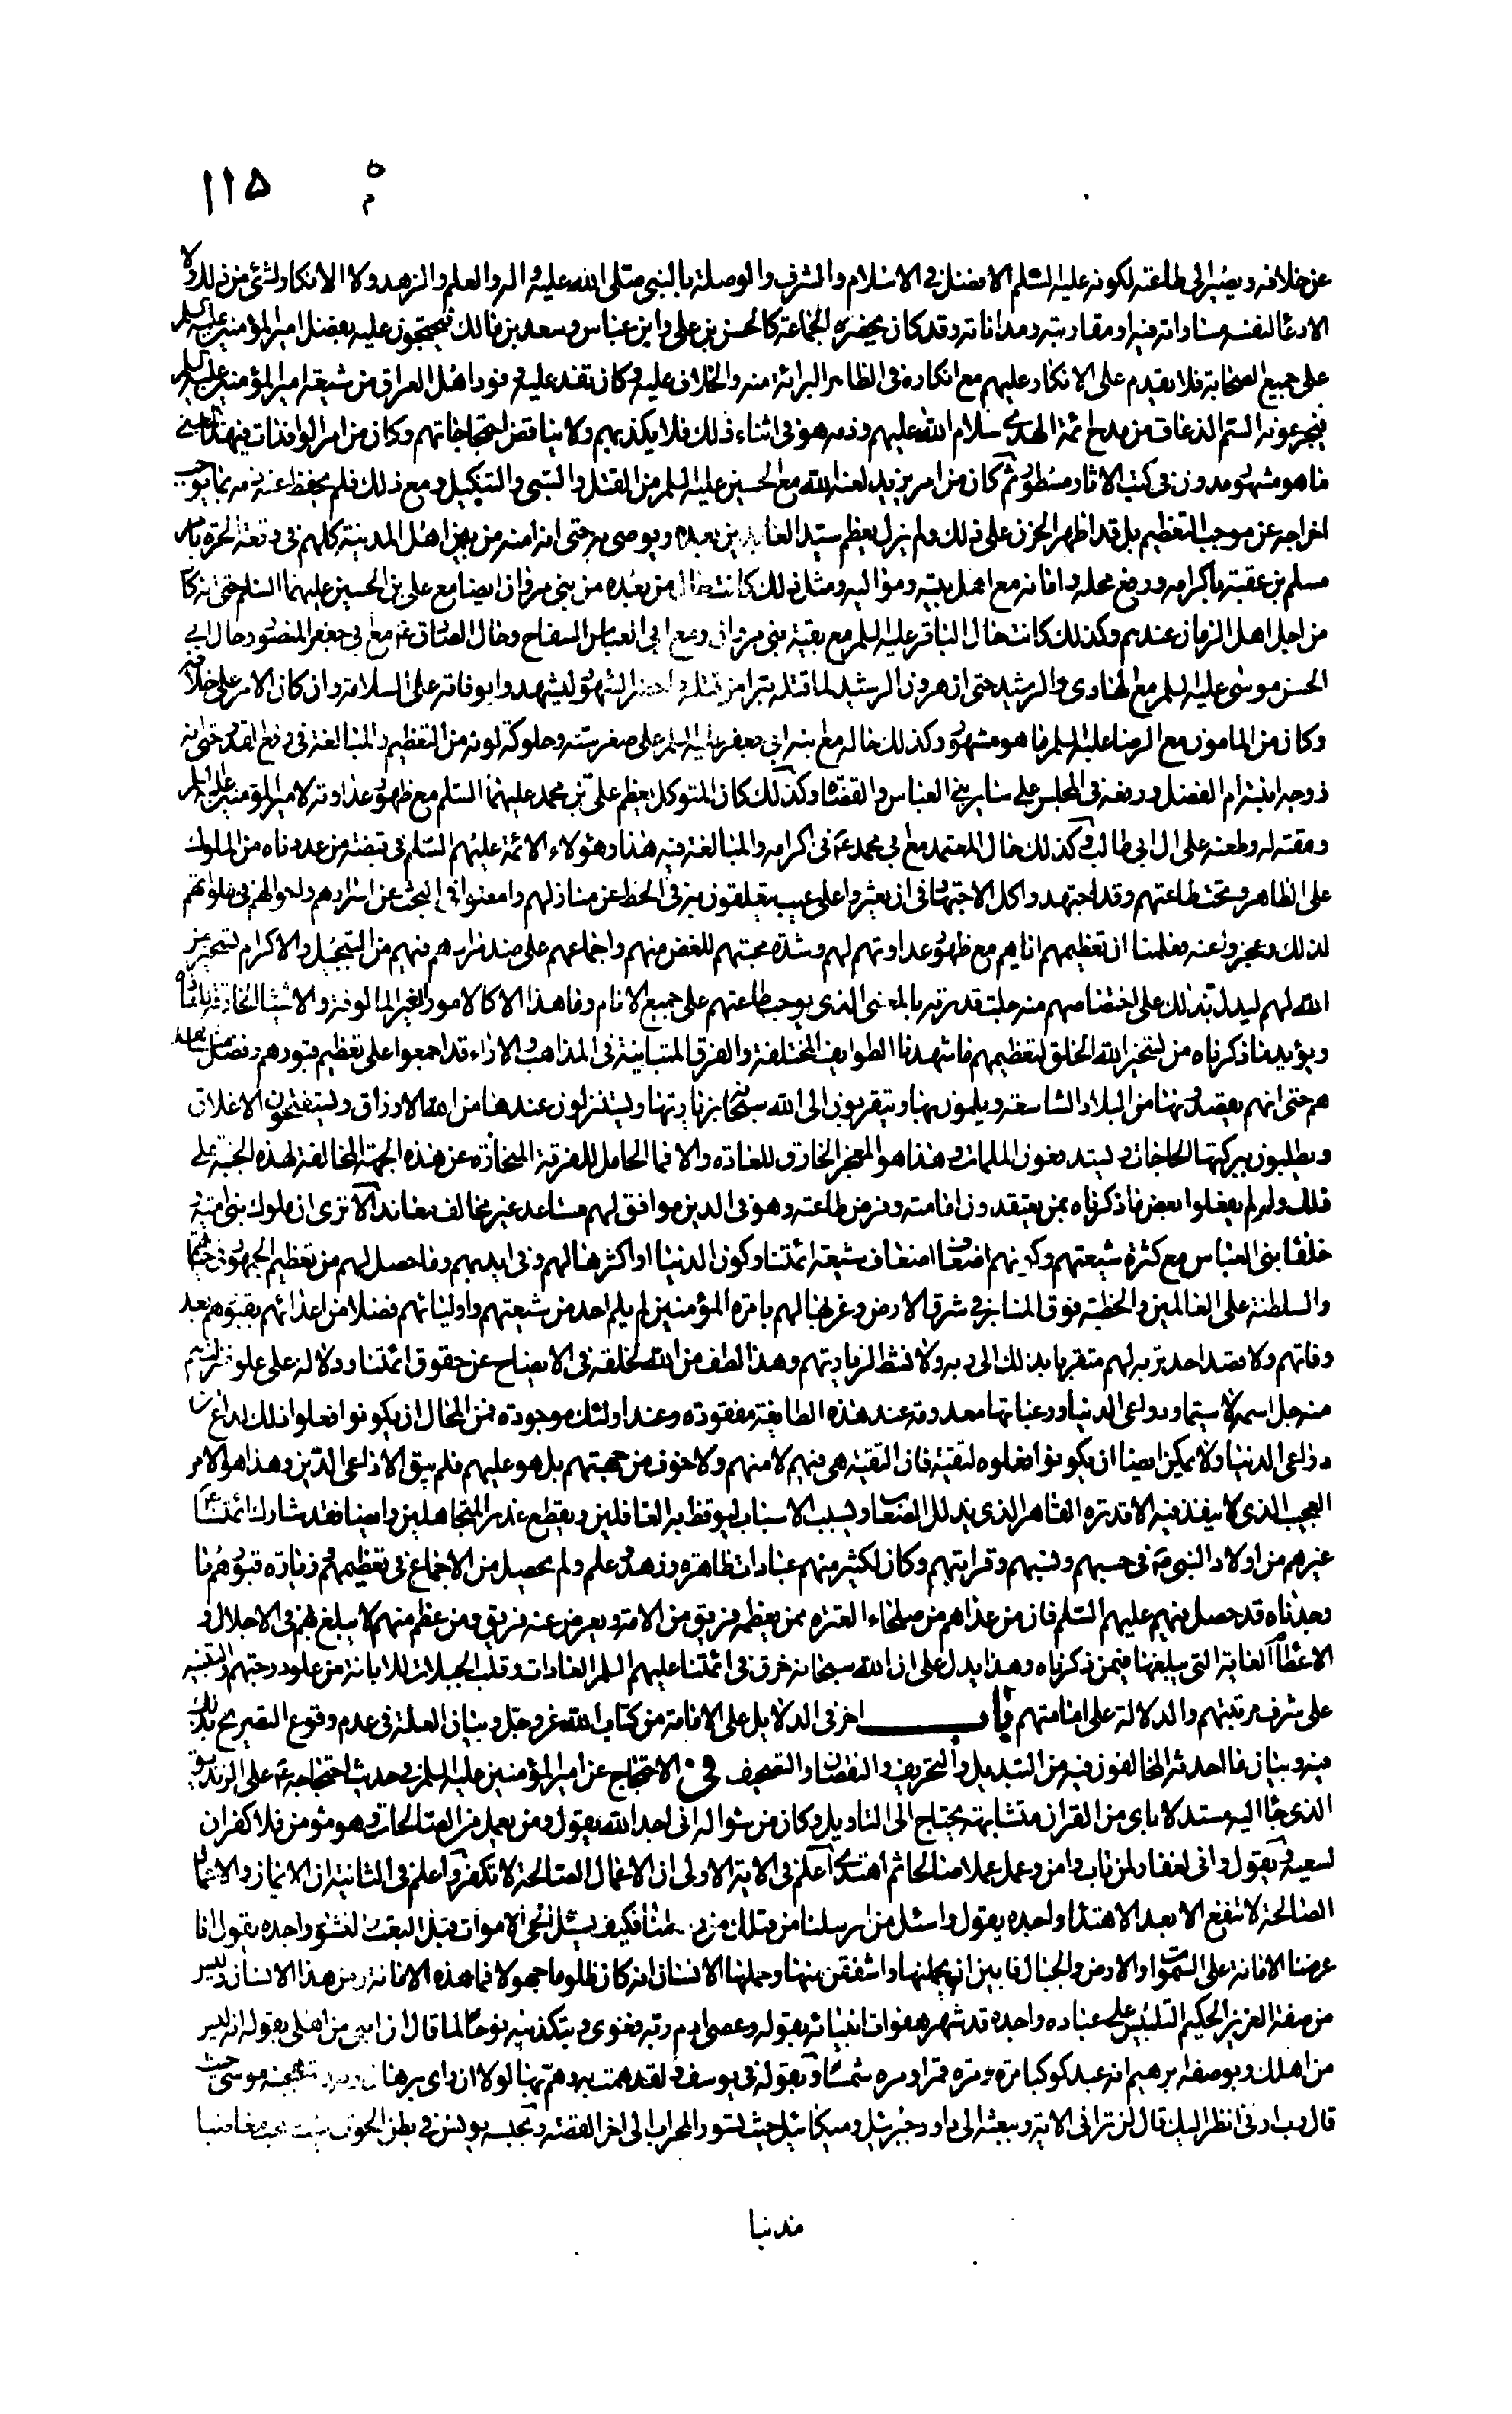 ١١۵
عن خلافه ويصير الى طاعته لكونه عليه السلم الافضل فى الاسلام والشرف والوصلة بالنبى صلى الله عليه واله والعلم والزهد ولا الانكار لشئ من ذلك ولا
الادعا لنفسه مساواته فيه او مقاربته ومداناته وقد كان يحضره الجماعة كالحسن بن على وابن عباس وسعد بن مالك فيحتجون عليه بفضل امير المؤمنين عليه السلم
على جميع الصحابة فلا يقدم على الانكار عليهم مع انكاره فى الظاهر البرائة منه والخلاف عليه وكان تفد عليه وفود اهل العراق من شيعة امير المؤمنين عليه السلم
فيجرعونه السم الذعاف من مدح ائمة الهدى سلام الله عليهم وذمه هو فى اثناء ذلك فلا يكذبهم ولا يناقض احتجاجاتهم وكان من امر الوافدات فى هذا المعنى
ما هو مشهور مدون فى كتب الاثار مسطور ثم كان من امر يزيد لعنه الله مع الحسين عليه السلم من القتل والسبى والتنكيل ومع ذلك فلم يحفظ عنه ذمه بما يوجب
اخراجه عن موجب التعظيم بل قد اظهر الحزن على ذلك ولم يزل يعظم سيد العابدين بعده ويوصى به حتى انه امنه من بين اهل المدينة كلهم فى وقعة الحرة وامر
مسلم بن عقبة باكرامه ورفع محله وامانه مع اهل بيته ومواليه ومثل ذلك كانت حال من بعده من بنى مروان ايضا مع على بن الحسين عليهما السلم حتى انه كان
من اجل اهل الزمان عندهم وكذلك كانت حال الباقر عليه السلم مع بقية بنى مروان ومع ابى العباس السفاح وحال الصادق ع مع ابى جعفر المنصور وحال ابى
الحسن موسى عليه السلم مع الهادى والرشيد حتى ان هرون الرشيد لما قتله تبرا من قتله واحضر الشهود ليشهدوا بوفاته على السلامة وان كان الامر على خلافه
وكان من المامون مع الرضا عليه السلم ما هو مشهور وكذلك حاله مع ابنه ابى جعفر عليه السلم على صغر سنه وحلوكة لونه من التعظيم والمبالغة فى رفع القدر حتى انه
زوجه ابنته ام الفضل ورفعه فى المجلس على ساير بنى العباس والقضاة وكذلك كان المتوكل يعظم على بن محمد عليهما السلم مع ظهور عداوته لامير المؤمنين عليه السلم
ومقته له وطعنه على ال ابى طالب وكذلك حال المعتمد مع ابى محمد ع فى اكرامه والمبالغة فيه هذا وهؤلاء الائمة عليهم السلم فى قبضة من عددناه من الملوك
على الظاهر وتحت طاعتهم وقد اجتهدوا كل الاجتهاد فى ان يعثروا على عيب يتعلقون به فى الحط عن منازلهم وامعنوا فى البحث عن اسرارهم واحوالهم فى خلواتهم
لذلك وعجزوا عنه فعلمنا ان تعظيمهم اياهم مع ظهور عداوتهم لهم وشدة محبتهم للغض منهم واجماعهم على ضد مرادهم فيهم من التبجيل والاكرام تسخير من
الله لهم ليدل بذلك على اختصاصهم منه جلت قدرته بالمعنى الذى يوجب طاعتهم على جميع الانام وما هذا الا كالامور الغير المالوفة والاشياء الخارقة للعادة
ويؤيد ما ذكرناه من تسخير الله الخلق لتعظيمهم ما شهدنا الطوايف المختلفة والفرق المتباينة فى المذاهب والاراء قد اجمعوا على تعظيم قبورهم وفضل مشاهد
هم حتى انهم يقصدونها من البلاد الشاسعة ويلمون بها ويتقربون الى الله سبحانه بزيارتها ويستنزلون عندها من الله الارزاق ويستفتحون الاغلاق
ويطلبون ببركتها الحاجات ويستدفعون الملمات وهذا هو المعجز الخارق للعادة والا فما الحامل للفرقة المنحازة عن هذه الجهة المخالفة لهذه الجنبة على
ذلك ولم لم يفعلوا بعض ما ذكرناه بمن يعتقدون امامته وفرض طاعته وهو فى الدين موافق لهم مساعد غير مخالف معاند الا ترى ان ملوك بنى امية و
خلفا بنى العباس مع كثرة شيعتهم وكونهم اضعاف اضعاف شيعة ائمتنا وكون الدنيا او اكثرها لهم وفى ايديهم وما حصل لهم من تعظيم الجمهور فى حياتهم
والسلطنة على العالمين والخطبة فوق المنابر فى شرق الارض وغربها لهم بامرة المؤمنين لم يلم احد من شيعتهم واوليائهم فضلا من اعدائهم بقبورهم بعد
وفاتهم ولا قصد احد تربة لهم متقربا بذلك الى ربه ولا نشط لزيارتهم وهذا لطف من الله لخلقه فى الايضاح عن حقوق ائمتنا ودلالة على علو منزلتهم
منه جل اسمه لا سيما ودواعى الدنيا ورغباتها معدومة عند هذه الطايفة مفقودة وعند اولئك موجودة فمن المحال ان يكونوا فعلوا ذلك لداع من
دواعى الدنيا ولا يمكن ايضا ان يكونوا فعلوه لتقية فان التقية هى فيهم لا منهم ولا خوف من جهتهم بل هو عليهم فلم يبق الا داعى الدين وهذا هو الامر
العجيب الذى لا ينفذ فيه الا قدرة القاهر الذى يذلل الصعاب ويسبب الاسباب ليوقظ به الغافلين ويقطع عذر المتجاهلين وايضا فقد شارك ائمتنا ع
غيرهم من اولاد النبى ص فى حسبهم ونسبهم وقرابتهم وكان لكثير منهم عبادات ظاهرة وزهد وعلم ولم يحصل من الاجماع فى تعظيمهم وزيارة قبورهم ما
وجدناه قد حصل فيهم عليهم السلم فان من عداهم من صلحاء العترة ممن يعظمه فريق من الامة ويعرض عنه فريق ومن عظم منهم لا يبلغ بهم فى الاجلال و
الاعظام الغاية التى يبلغها فيمن ذكرناه وهذا يدل على ان الله سبحانه خرق فى ائمتنا عليهم السلم العادات وقلب الجبلات للابانة من علو درجتهم والتنبيه
على شرف مرتبتهم والدلالة على امامتهم باب اخر فى الدلايل على الامامة من كتاب الله عز وجل وبيان العلة فى عدم وقوع التصريح بذلك
فيه وبيان ما احدثه المخالفون فيه من التبديل والتحريف والنقصان والتصحيف فى الاحتجاج عن امير المؤمنين عليه السلم فى حديث احتجاجه ع على الزنديق
الذى جاء اليه مستدلا باى من القران متشابهة يحتاج الى التاويل وكان من سواله انى اجد الله يقول ومن يعمل من الصالحات وهو مؤمن فلا كفران
لسعيه ويقول وانى لغفار لمن تاب وامن وعمل عملا صالحا ثم اهتدى اعلم فى الاية الاولى ان الاعمال الصالحة لا تكفر واعلم فى الثانية ان الايمان والاعمال
الصالحة لا تنفع الا بعد الاهتداء واجده يقول واسئل من ارسلنا من قبلك من رسلنا فكيف يسئل الحى الاموات قبل البعث والنشور واجده يقول انا
عرضنا الامانة على السموات والارض والجبال فابين ان يحملنها واشفقن منها وحملها الانسان انه كان ظلوما جهولا فما هذه الامانة ومن هذا الانسان وليس
من صفة العزيز الحكيم التلبيس على عباده واجده قد شهر هفوات انبيائه بقوله وعصى ادم ربه فغوى وبتكذيبه نوحا لما قال ان ابنى من اهلى بقوله انه ليس
من اهلك وبوصفه ابرهيم انه عبد كوكبا مرة ومرة قمرا ومرة شمسا وبقوله فى يوسف ولقد همت به وهم بها لولا ان راى برهان ربه وبتهجينه موسى حيث
قال رب ارنى انظر اليك قال لن ترانى الاية وببعثه الى داود جبرئيل وميكائيل حيث تسور المحراب الى اخر القصة وبحبسه يونس فى بطن الحوت حيث ذهب مغاضبا
مذنبا